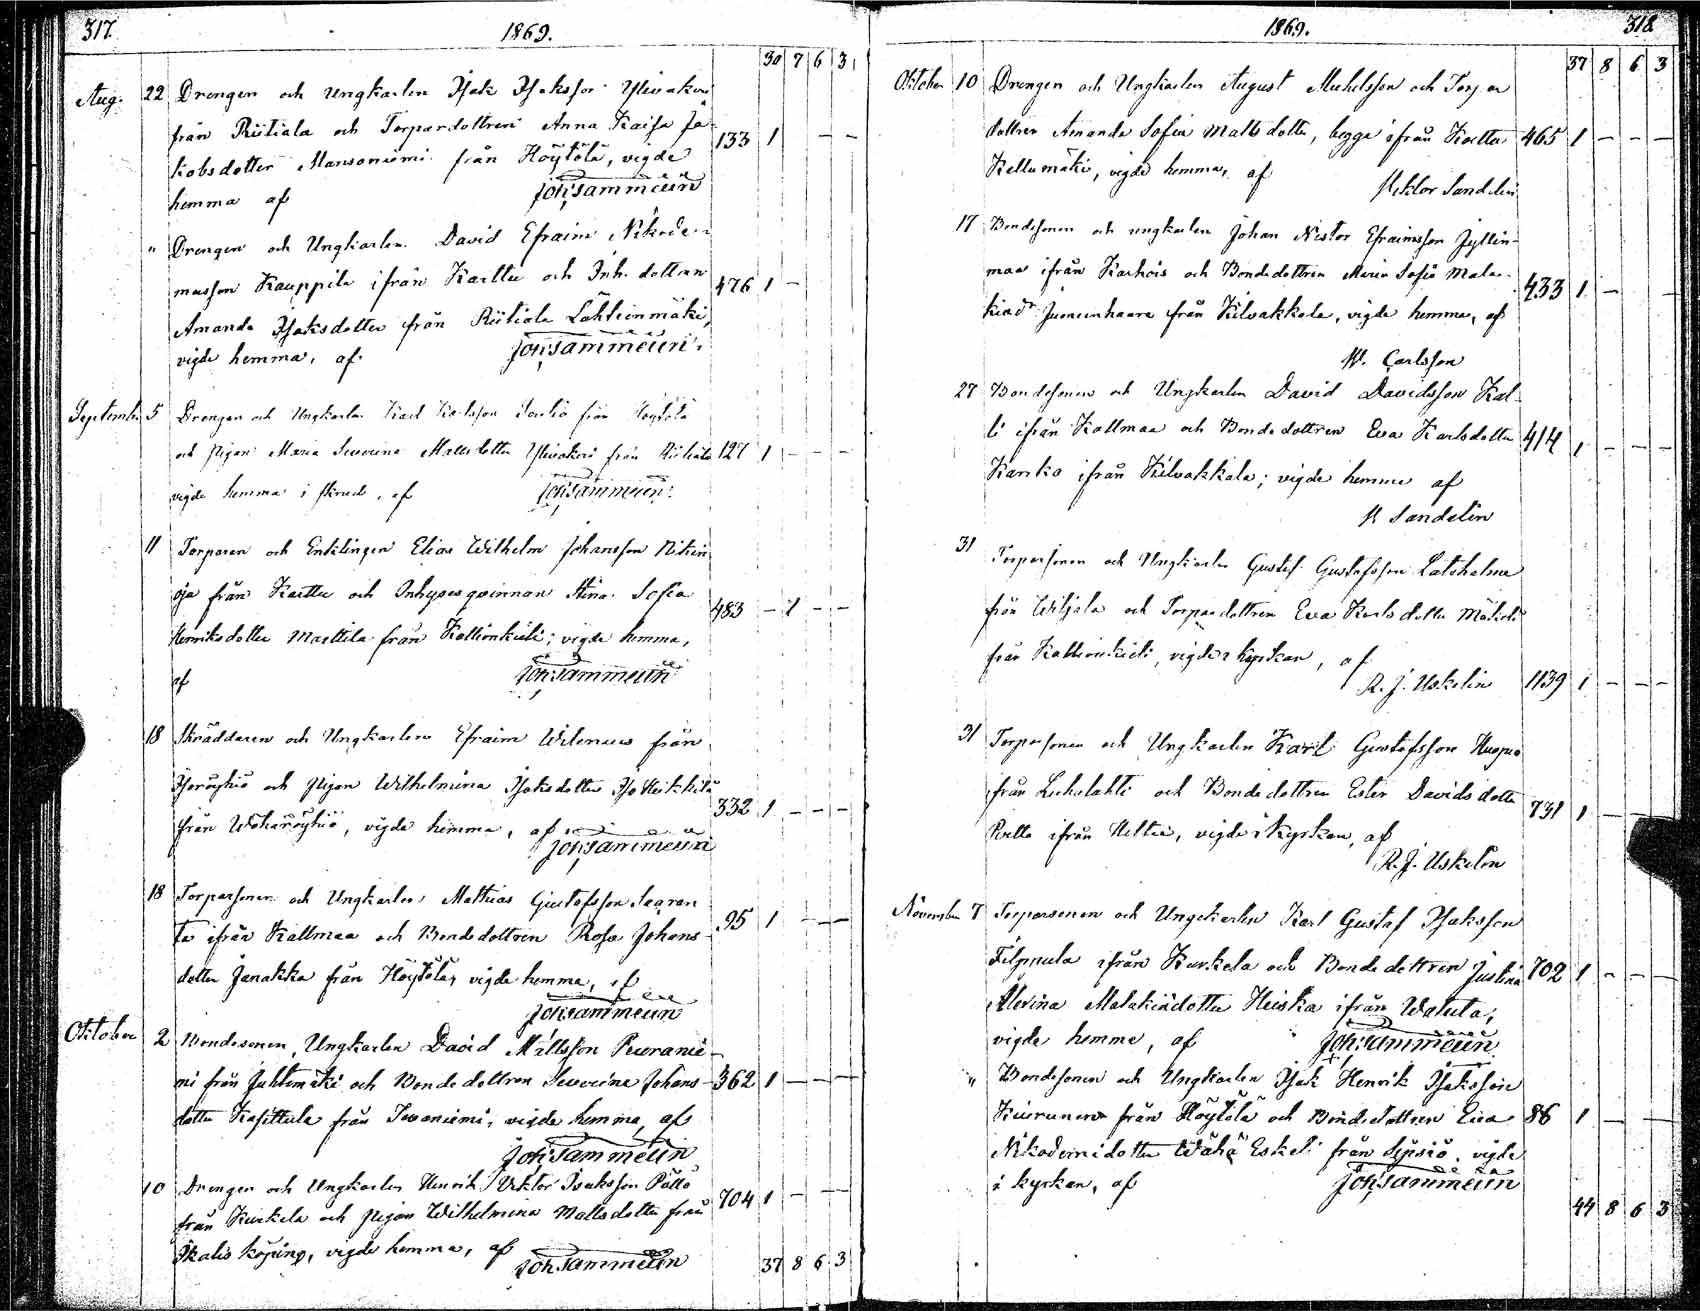 317.
1869.
30 7 6 3
Aug. 22 Drengen och Ungkarlen Isak Isaksson
från Riitiala och Torpardottren Anna Kaisa Ja- 133 1 — —
kobsdotter Mansoniemi från Höytölä, vigde
hemma af Joh: Sammelin
" Drengen och Ungkarlen David Efraim Nikode-
musson Kauppila ifrån Karttu och Inh. dottren 476 1 —
Amanda Isaksdotter från Riitiala Lähteinmäki,
vigde hemma, af Joh: Sammelin
September 5 Drengen och Ungkarlen Karl Karlsson från Höytölä
och Pigan Maria Serverina Mattsdotter från Riitiala 127 1 — — —
vigde hemma i skrud, af Joh: Sammelin
11 Torparen och Enklingen Elias Wilhelm Johansson
oja från Karttu och Inhysesqvinnan Stina Sofia 483 — 1 — —
Henriksdotter Marttila från Kallionkieli; vigde hemma,
af Joh: Sammelin
18 Skräddaren och Ungkarlen Efraim Wilenius från
Isoröyhiö och Pigan Wilhelmina Isaksdotter Iso Heikkilä 332 1 — — —
från Wähäröyhiö, vigde hemma, af Joh: Sammelin
18 Torparsonen och Ungkarlen Mathias Gustafsson
ifrån Kallmaa och Bondedottren Rosa Johans- 95 1 — —
dotter Janakka från Höytölä, vigde hemma, af
Joh: Sammelin
Oktober 2 Bondesonen, Ungkarlen David Mattsson Peuranie-
mi från Juhtimäki och Bondedottren Serverina Johans- 362 1 — — —
dotter Kasittula från Tevaniemi, vigde hemma, af
Joh: Sammelin
10 Drengen och Ungkarlen Henrik Viktor Isaksson
från Kurkela och Pigan Wilhelmina Mattsdotter från 704 1 — —
Ikalis köping, vigde hemma, af Joh: Sammelin
37 8 6 3
1869. 318.
37 8 6 3
Oktober 10 Drengen och Ungkarlen August Mickelsson och Torpar
dottren Amanda Sofia Mattsdotter, begge ifrån Karttu 465 1 — — —
Kellomäki, vigde hemma, af Viktor Sandelin
17 Bondesonen och ungkarlen Johan Nestor Efraimsson Jyllin-
maa ifrån Karhois och Bondedottren Maria Sofia Mala- 433 1 — —
kiasdr Juonenhaara från Kilvakkala, vigde hemma, af
W. Carlsson
27 Bondesonen och Ungkarlen David Davidsson Kal-
li ifrån Kallmaa och Bondedottren Eva Karlsdotter 414 1 — — —
Kanko ifrån Kilvakkala; vigde hemma af
V Sandelin
31 Torparsonen och Ungkarlen Gustaf Gustafsson
från Wiljala och Torpardottren Eva Karlsdotter
från Kallionkieli, vigde i kyrkan, af
R. J. Uskelin 1139 1 — — —
31 Torparsonen och Ungkarlen Karl Gustafsson
från Leckolahti och Bondedottren Ester Davidsdotter 731 1 — —
ifrån Heittu, vigde i kyrkan, af
R. J. Uskelin
November 7 Torparsonen och Ungkarlen Karl Gustaf Isaksson
Filppula ifrån Kurkela och Bondedottren Justina 702 1 — — —
Malakiädotter Heiska ifrån Watula;
vigde hemma, af Joh: Sammelin
" Bondesonen och Ungkarlen Isak Henrik Isaksson
från Höytölä och Bondedottren Eva 86 1 — —
Nikodemidotter Wähä Eskeli från Sipsiö, vigde
i kyrkan, af Joh: Sammelin
44 8 6 3